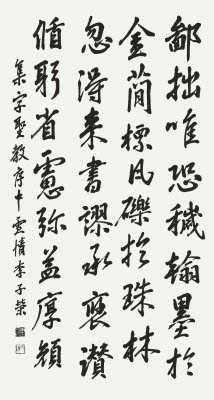 鄙拙唯恐穢翰墨於
金簡標凡礫於珠林
忽得來書謬承褒讃
循躬省慮弥益厚顏
集字聖教序中雲情李子榮